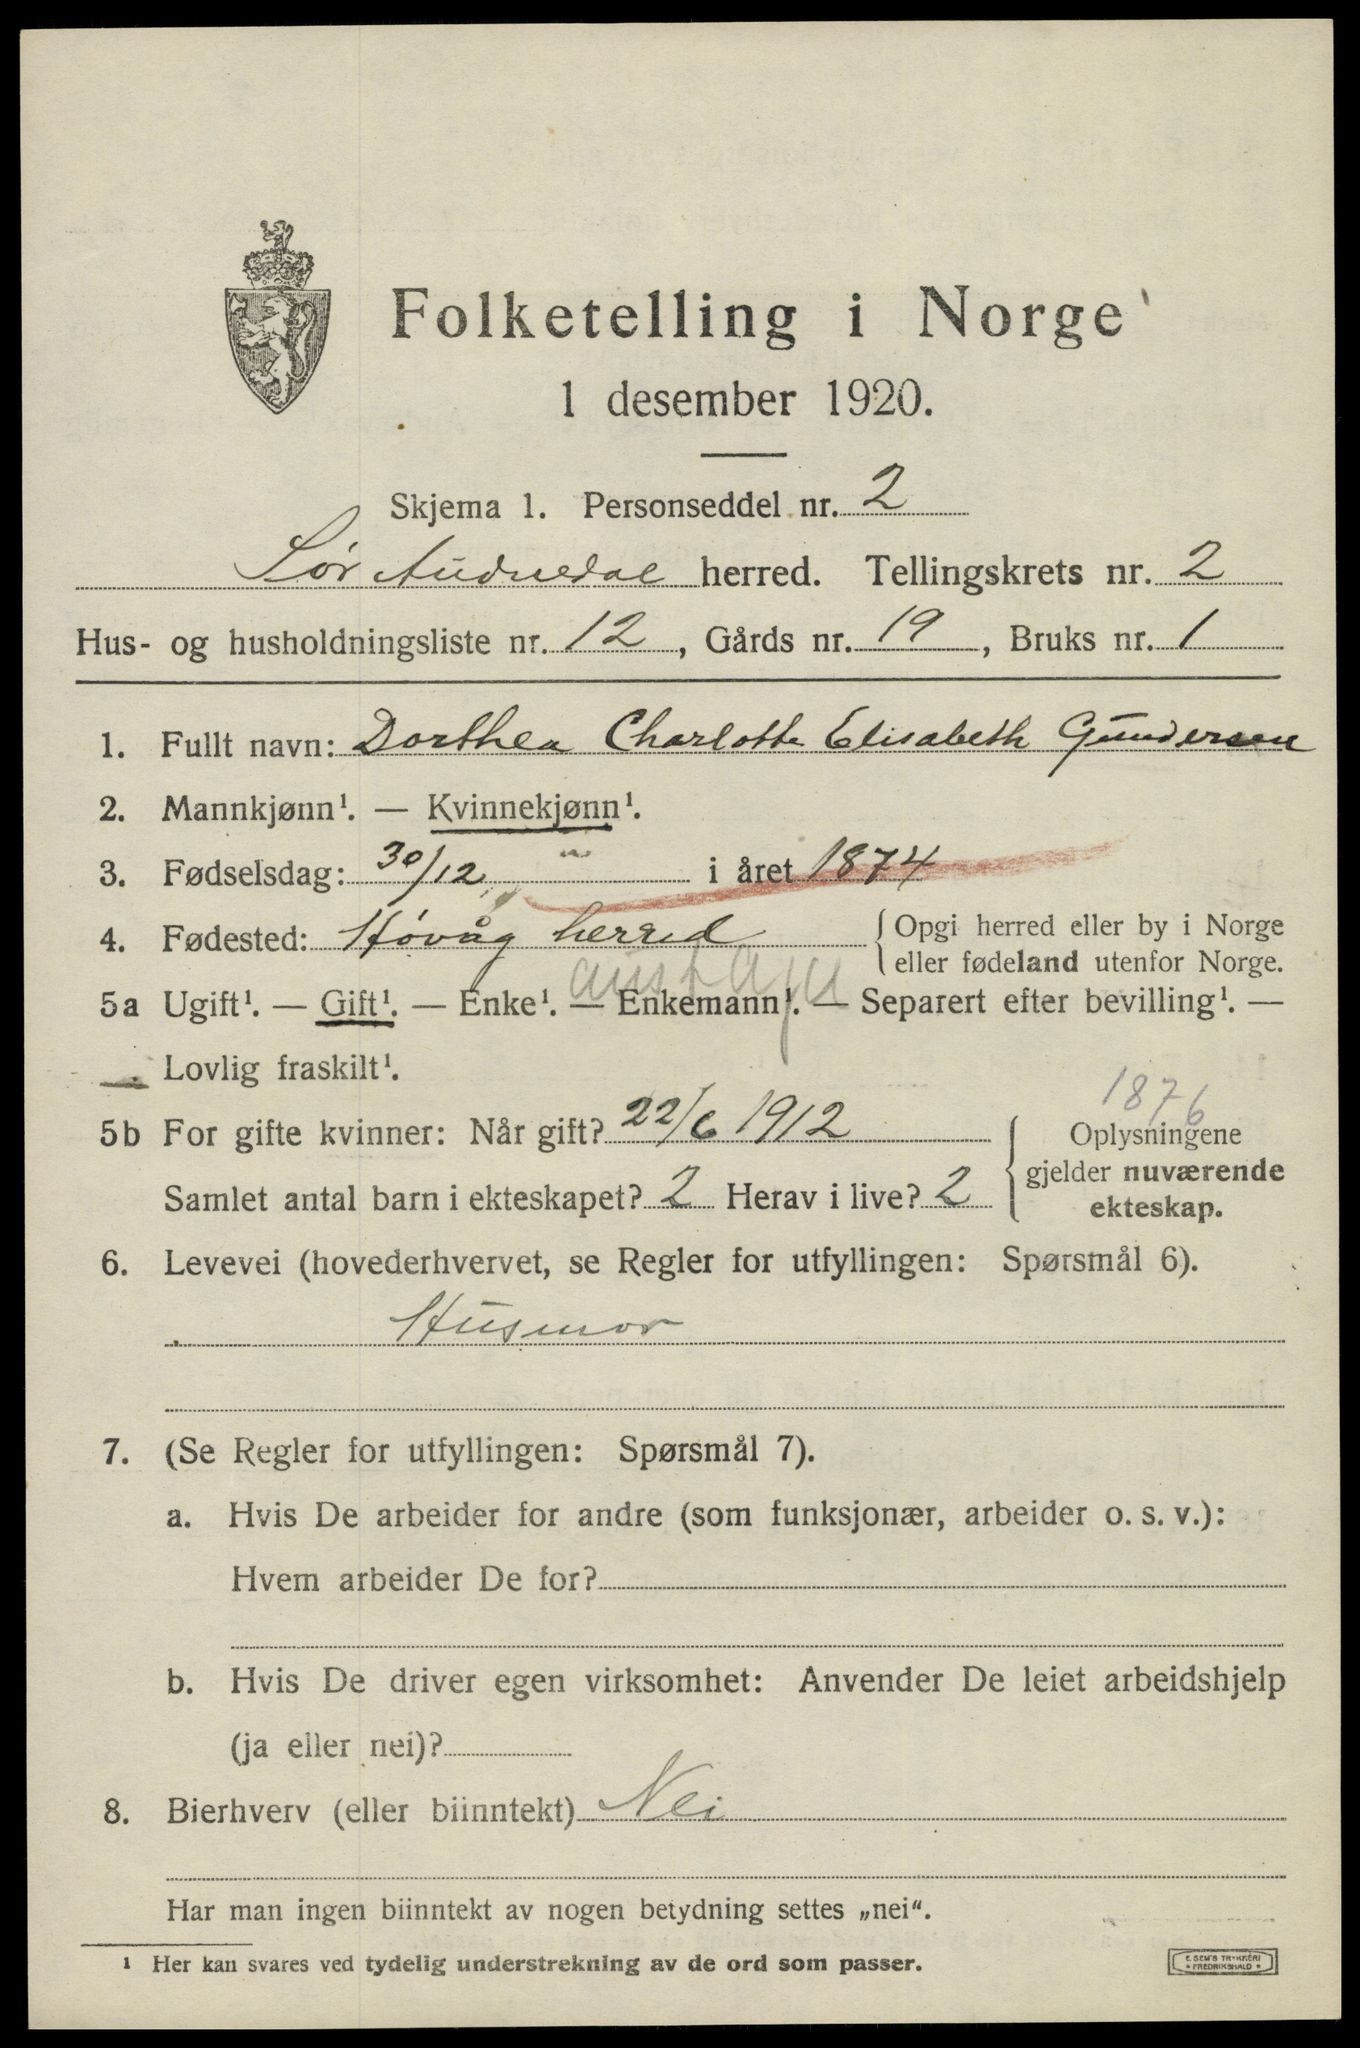 Folketelling i Norge
1 desember 1920.
Skjema 1. Personseddel nr. 2
Sør Audnedal herred. Tellingskrets nr. 2
Hus- og husholdningsliste nr. 12, Gårds nr. 19, Bruks nr. 1
1. Fullt navn: Dorthea Charlotte Elisabeth Gundersen
2. Mannkjønn¹. — Kvinnekjønn¹.
3. Fødselsdag: 30/12 i året 1874
4. Fødested: Høvåg herred { Opgi herred eller by i Norge
eller fødeland utenfor Norge.
aust Agd
5a Ugift¹. — Gift¹. — Enke¹. — Enkemann¹. — Separert efter bevilling¹. —
Lovlig fraskilt¹.
1876
5b For gifte kvinner: Når gift? 22/6 1912 { Oplysningene
gjelder nuværende
Samlet antal barn i ekteskapet? 2 Herav i live? 2
ekteskap.
6. Levevei (hovederhvervet, se Regler for utfyllingen: Spørsmål 6).
Husmor
7. (Se Regler for utfyllingen: Spørsmål 7).
a. Hvis De arbeider for andre (som funksjonær, arbeider o. s. v.):
Hvem arbeider De for?
b. Hvis De driver egen virksomhet: Anvender De leiet arbeidshjelp
(ja eller nei)?
8. Bierhverv (eller biinntekt) Nei
Har man ingen biinntekt av nogen betydning settes „nei“.
¹ Her kan svares ved tydelig understrekning av de ord som passer.
E. SEM'S TRYKKERI
FREDRIKSHALD